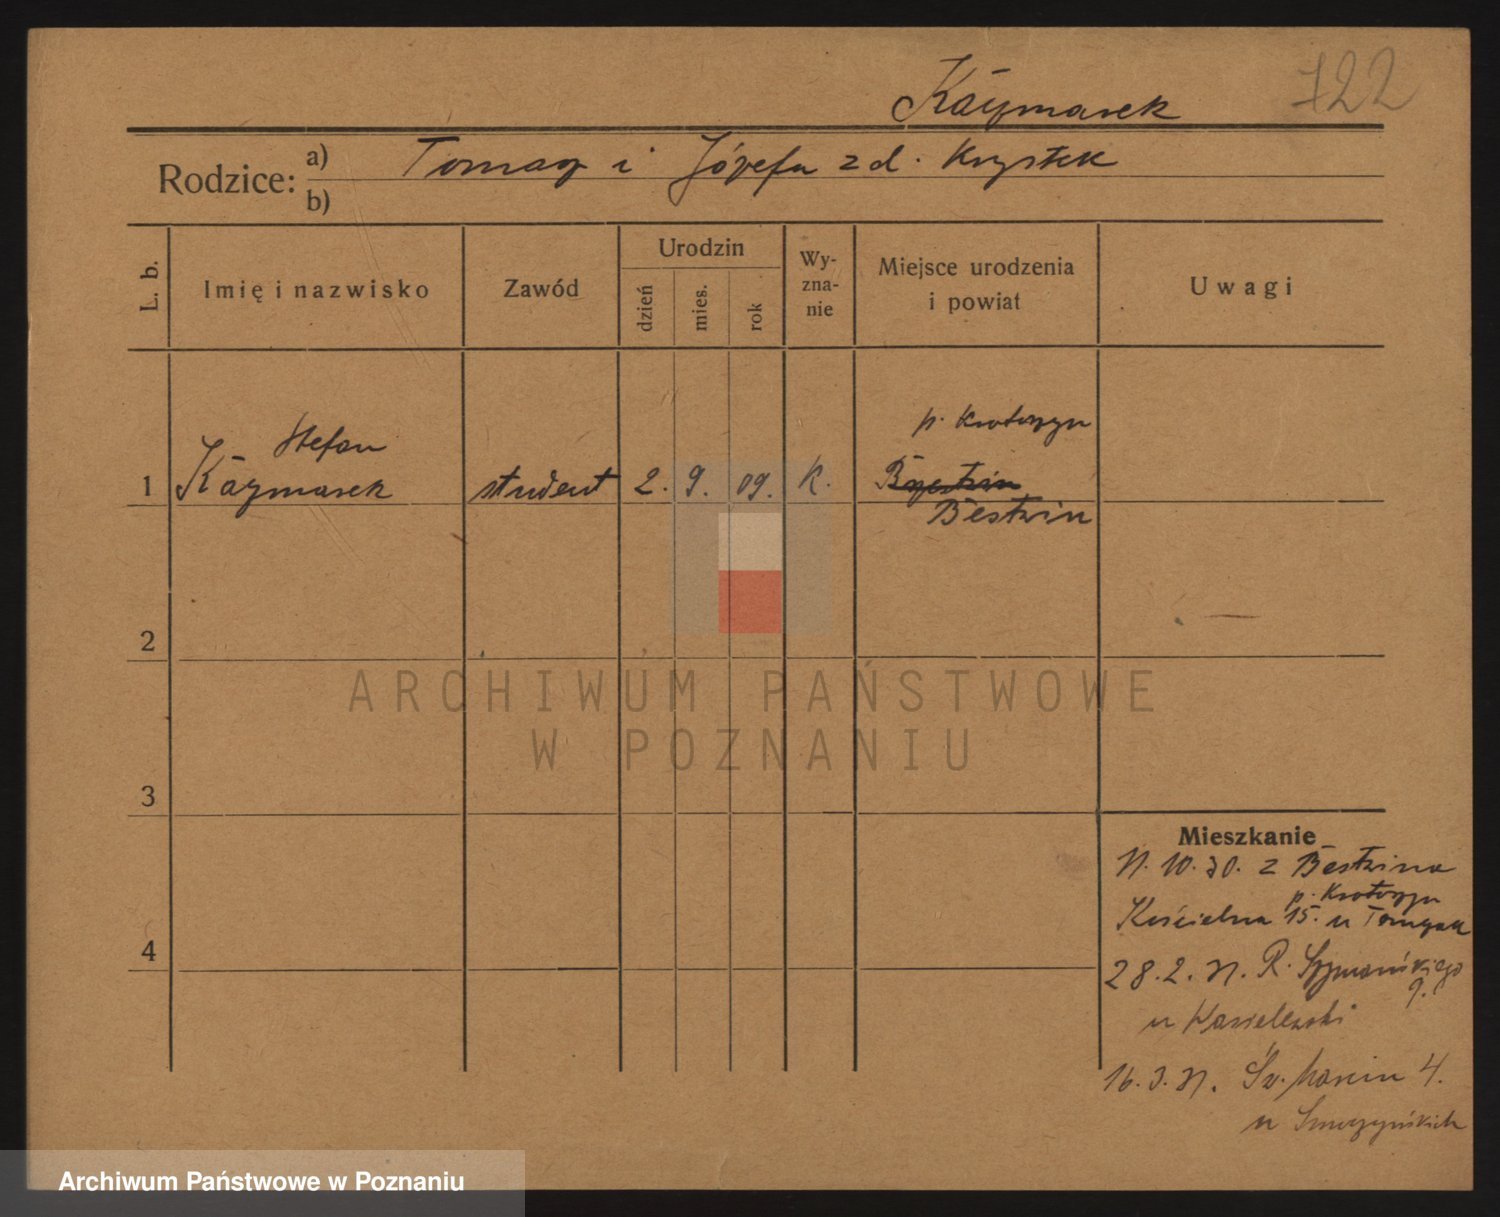 Kaczmarek
722
Rodzice: a) Tomasz i Józefa z d. Krystek
b)
L. b.
Imię i nazwisko
Zawód
Urodzin
dzień
mies.
rok
Wy-
zna-
nie
Miejsce urodzenia
i powiat
Uwagi
p. Krotoszyn
Stefan
1 Kaczmarek student 2. 9. 09. K.
Bestwin
2
ARCHIWUM PAŃSTWOWE
W POZNANIU
3
Mieszkanie
10. 30. z Bestwina
p. Krotoszyn
Kościelna 15. u Tomczak
4
28. 2. 31. R. Szymańskiego
9.
u Wasielewski
16. 3. 31. Św. Marcin 4.
u Smoczyńskich
Archiwum Państwowe w Poznaniu